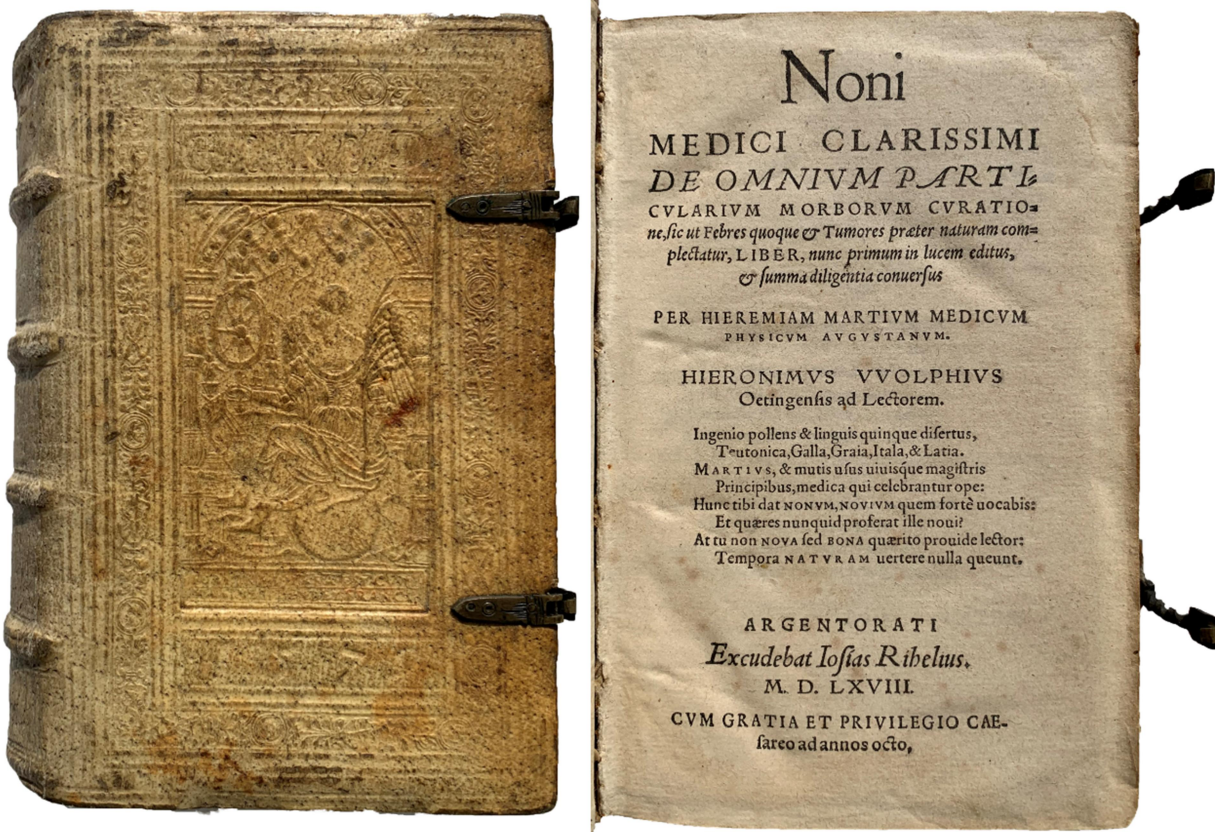 Noni
MEDICI CLARISSIMI
DE OMNIVM PARTI-
CVLARIVM MORBORVM CVRATIO=
ne, sic ut Febres quoque & Tumores præter naturam com=
plectatur, LIBER, nunc primum in lucem editus,
& summa diligentia conuersus
PER HIEREMIAM MARTIVM MEDICVM
PHYSICVM AVGVSTANVM.
HIERONIMVS VVOLPHIVS
Oetingensis ad Lectorem.
Ingenio pollens & linguis quinque disertus,
Teutonica, Galla, Graia, Itala, & Latia.
MARTIVS, & mutis usus uiuisque magistris
Principibus, medica qui celebrantur ope:
Hunc tibi dat NONVM, NOVIVM quem fortè uocabis:
Et quæres nunquid proferat ille noui?
At tu non NOVA sed BONA quærito prouide lector:
Tempora NATVRAM uertere nulla queunt.
ARGENTORATI
Excudebat Iosias Rihelius.
M. D. LXVIII.
CVM GRATIA ET PRIVILEGIO CAE-
sareo ad annos octo,